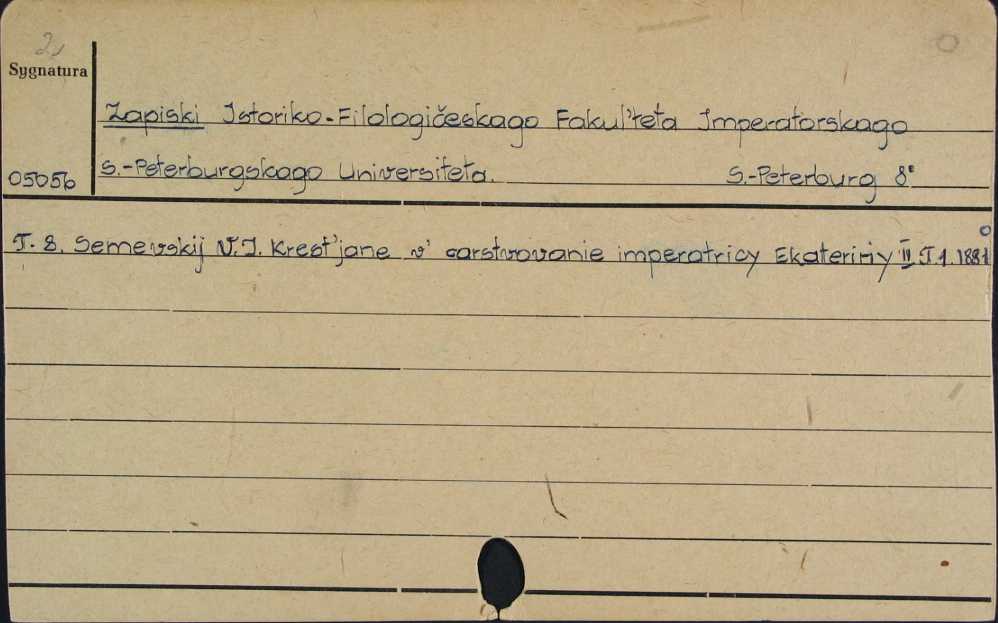 2,
Sygnatura
Zapiski Istoriko-Filologičeskago Fakul'teta Imperatorskago
05056 S.-Peterburgskago Universiteta. S.-Peterburg 8°
T. 8. Semevskij V.I. Krest'jane v' carstvovanie imperatricy Ekateriny II T.1. 1881